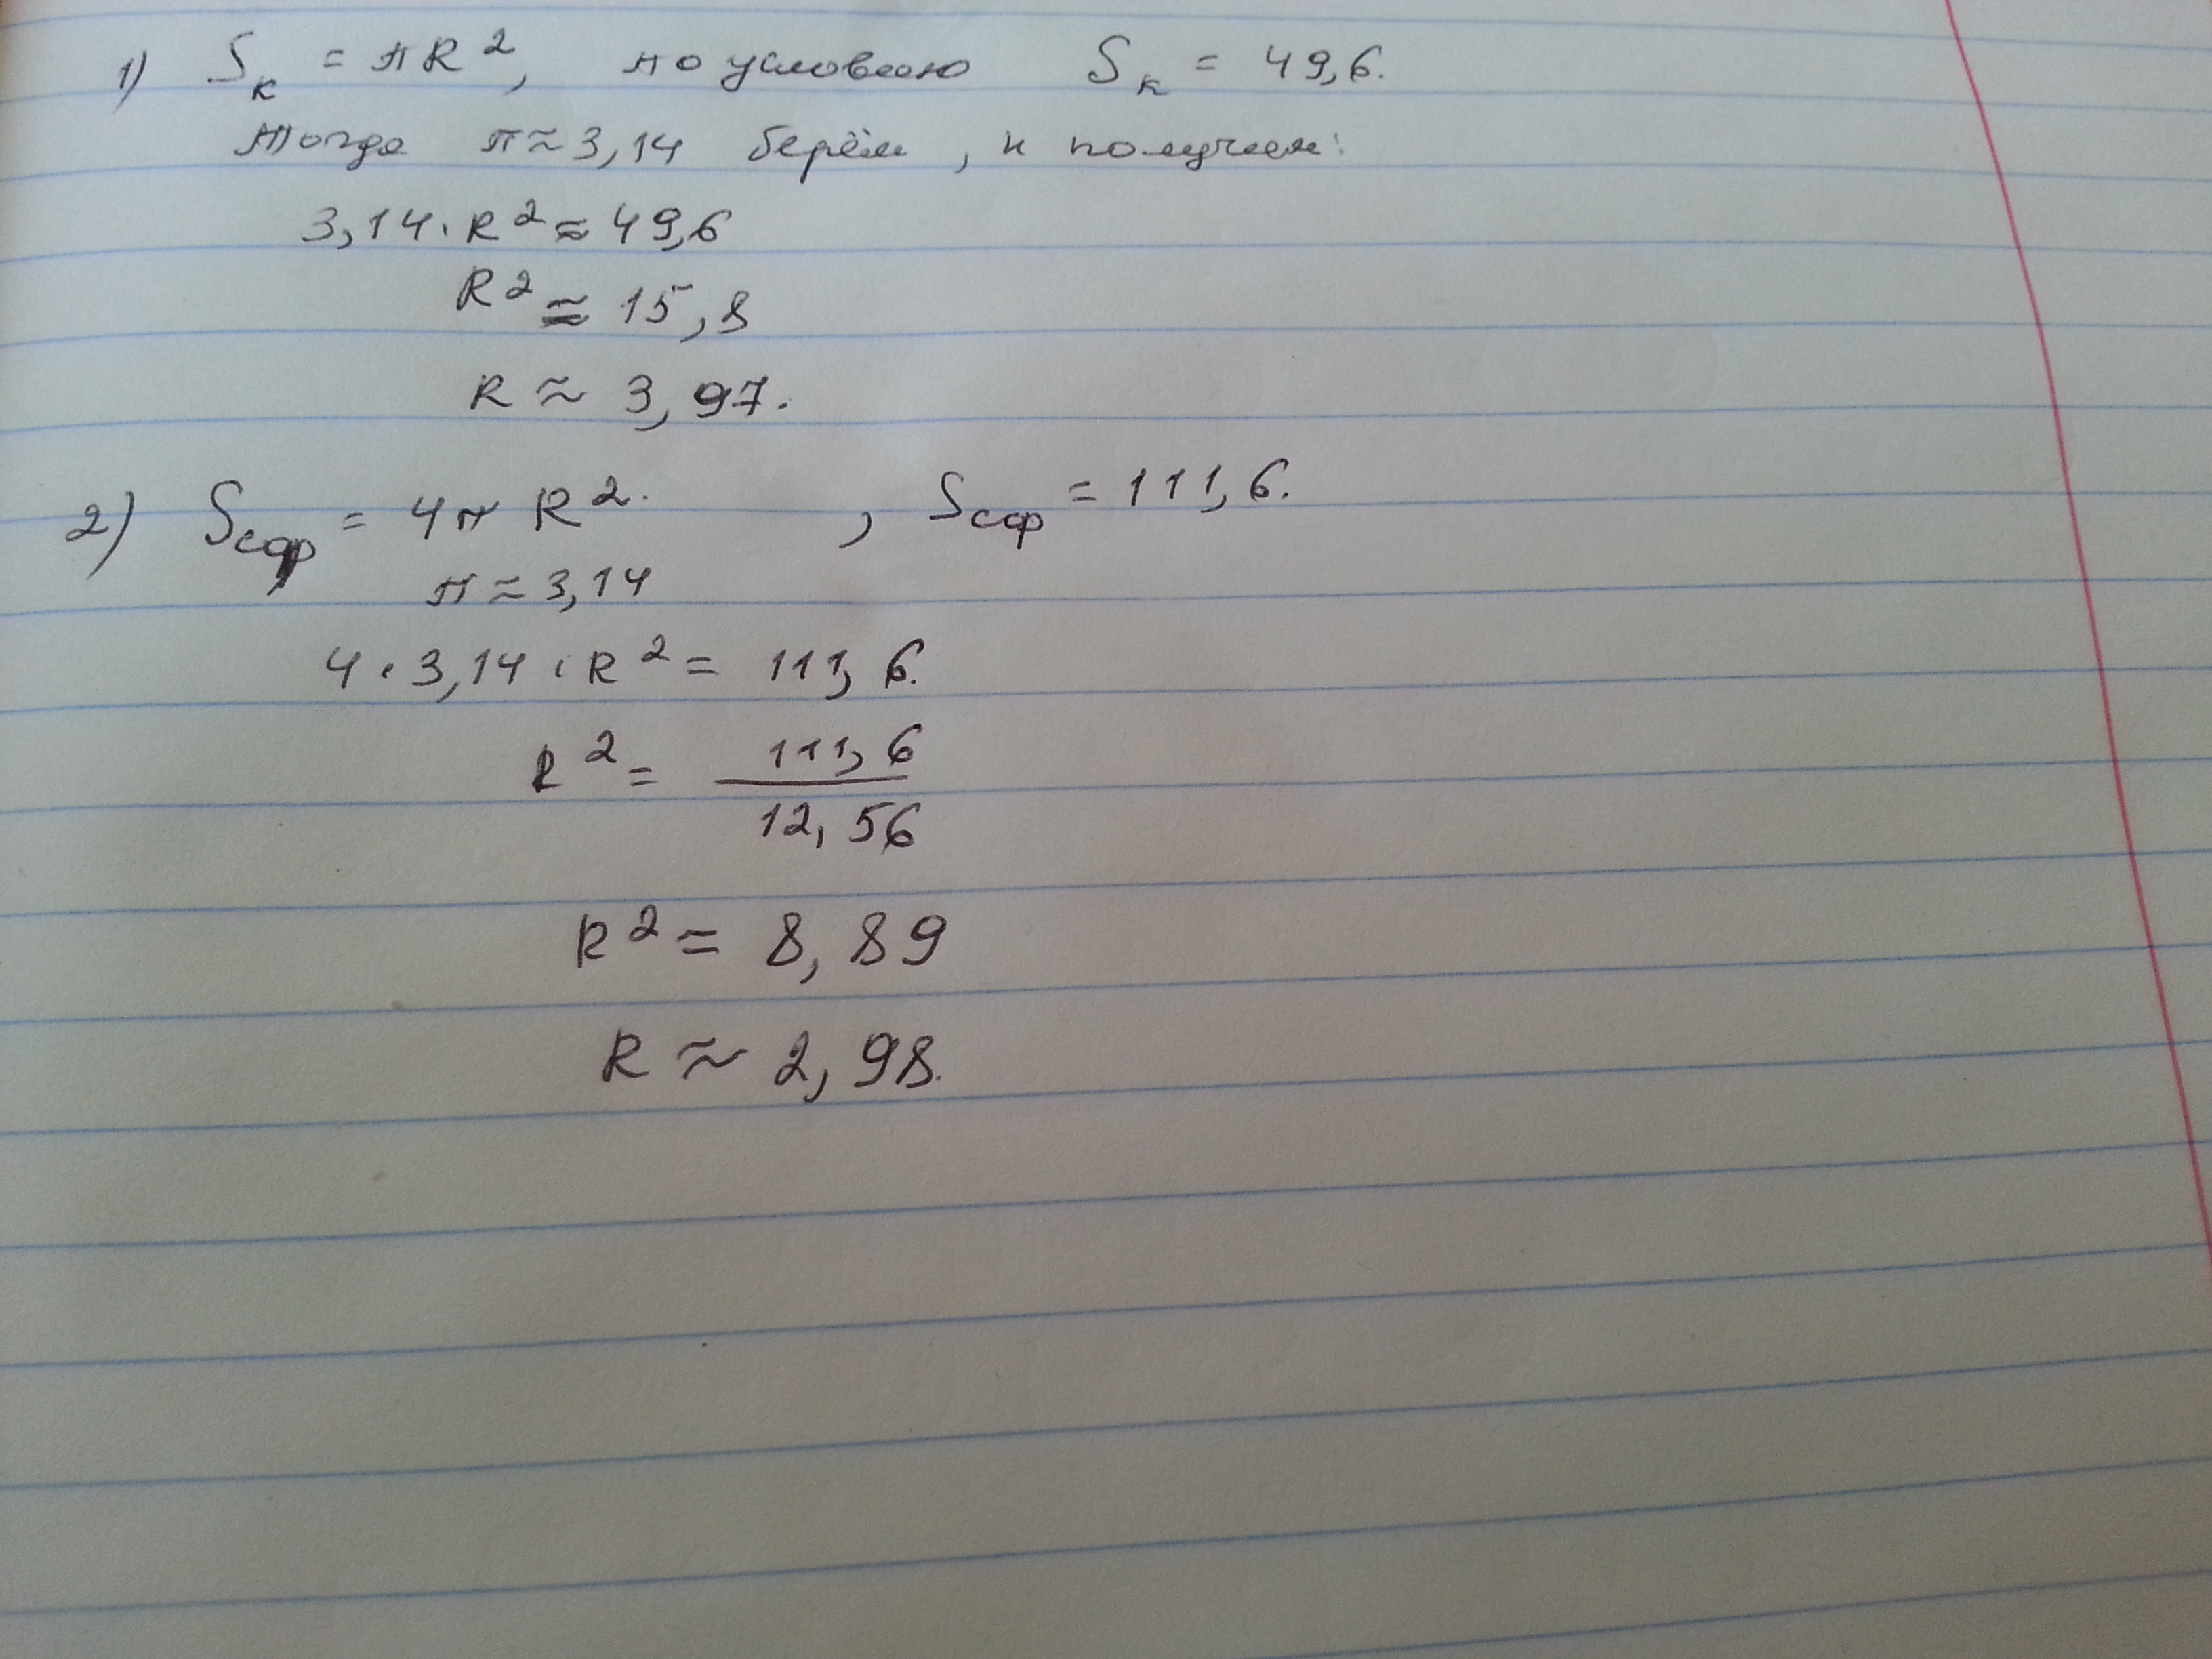 1) Sк = πR², по условию Sк = 49,6.
Тогда π ≈ 3,14 берём, и получаем:
3,14 · R² ≈ 49,6
R² ≈ 15,8
R ≈ 3,97.
2) Sсф = 4π R². , Sсф = 111,6.
π ≈ 3,14
4 · 3,14 · R² = 111,6.
R² = 111,6
12,56
R² ≈ 8,89
R ≈ 2,98.